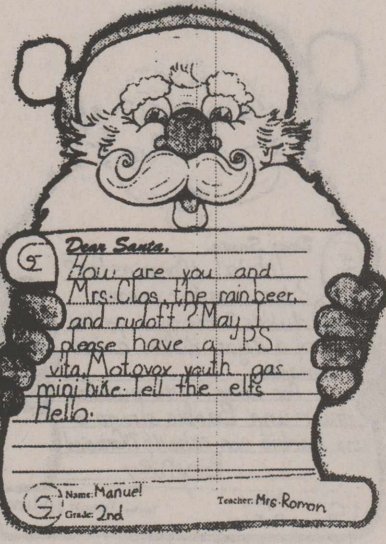 Dear Santa,
How are you and
Mrs. Clos, the rainbeer,
and rudoff? May I
please have a PS
vita, Motovox youth gas
mini bike. Tell the elfs
Hello.
Name: Manuel
Grade: 2nd
Teacher: Mrs. Romon